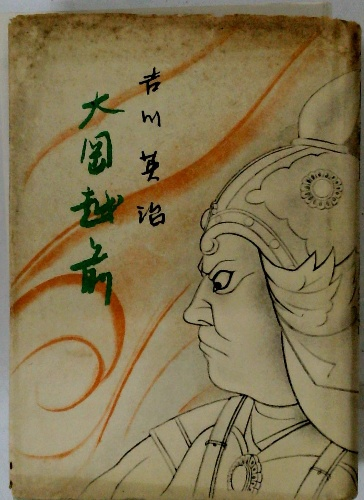 吉川英治
大岡越前